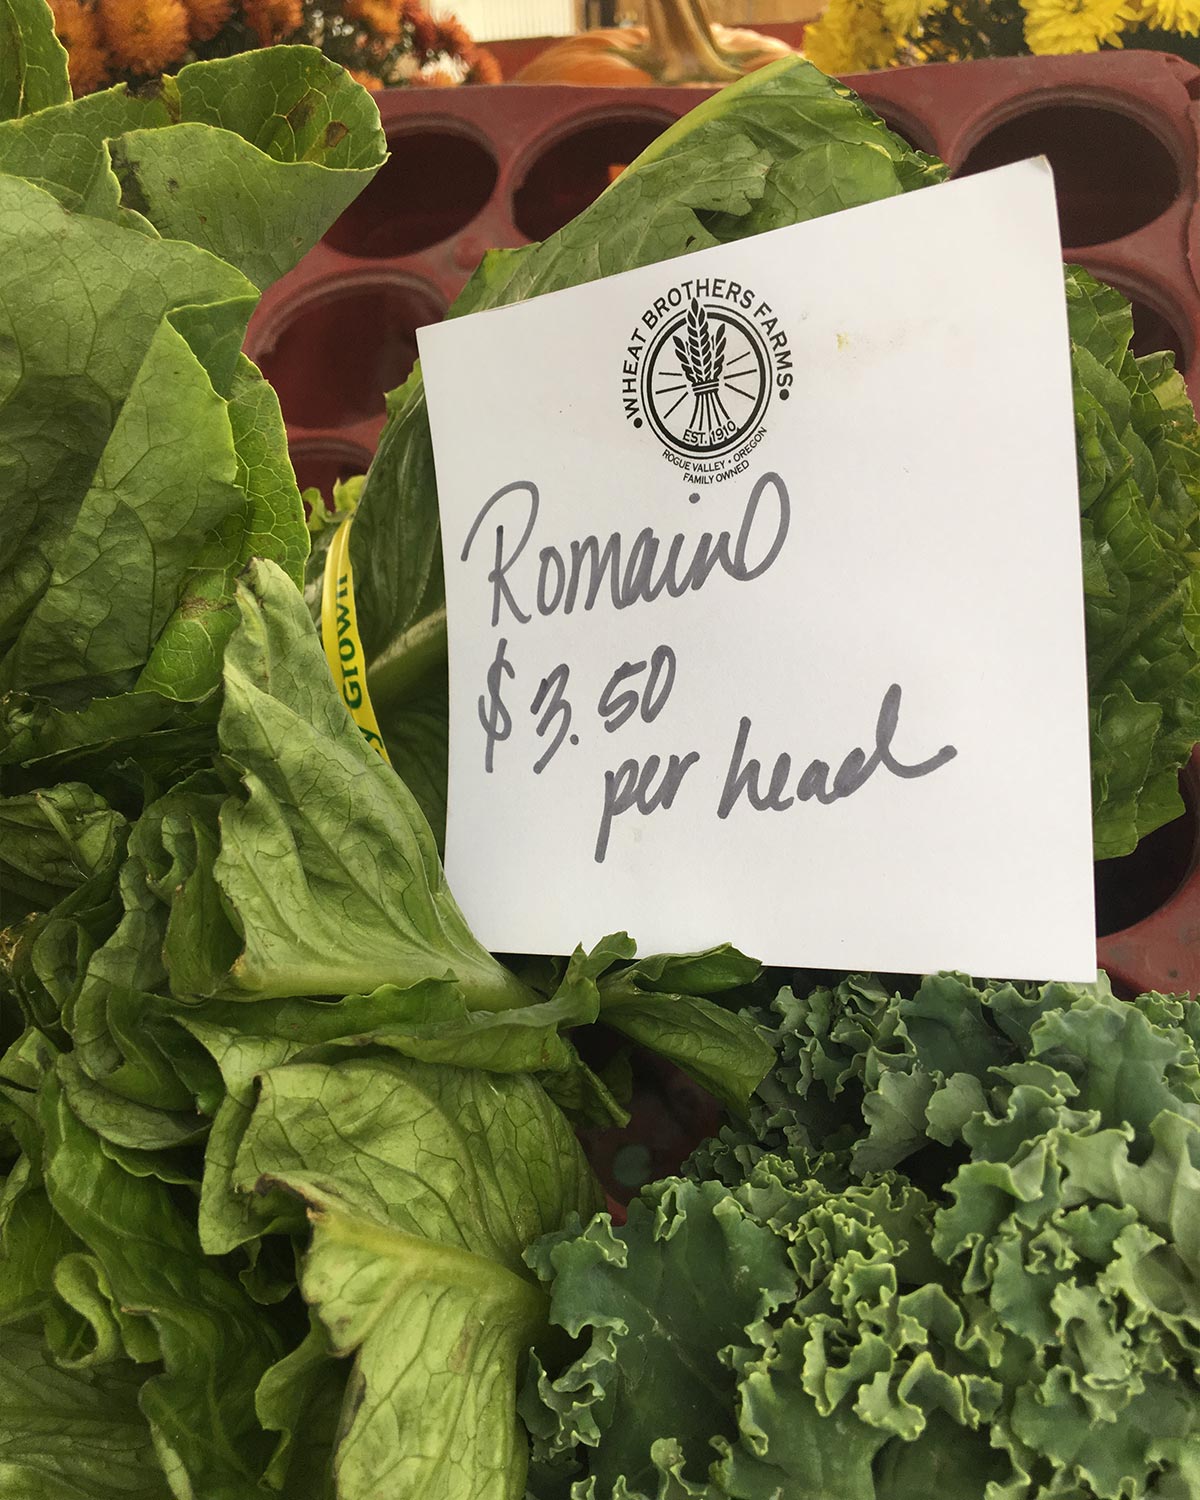 • WHEAT BROTHERS FARMS •
EST. 1910
ROGUE VALLEY • OREGON
FAMILY OWNED
Romaine
$3.50
per head
Grown